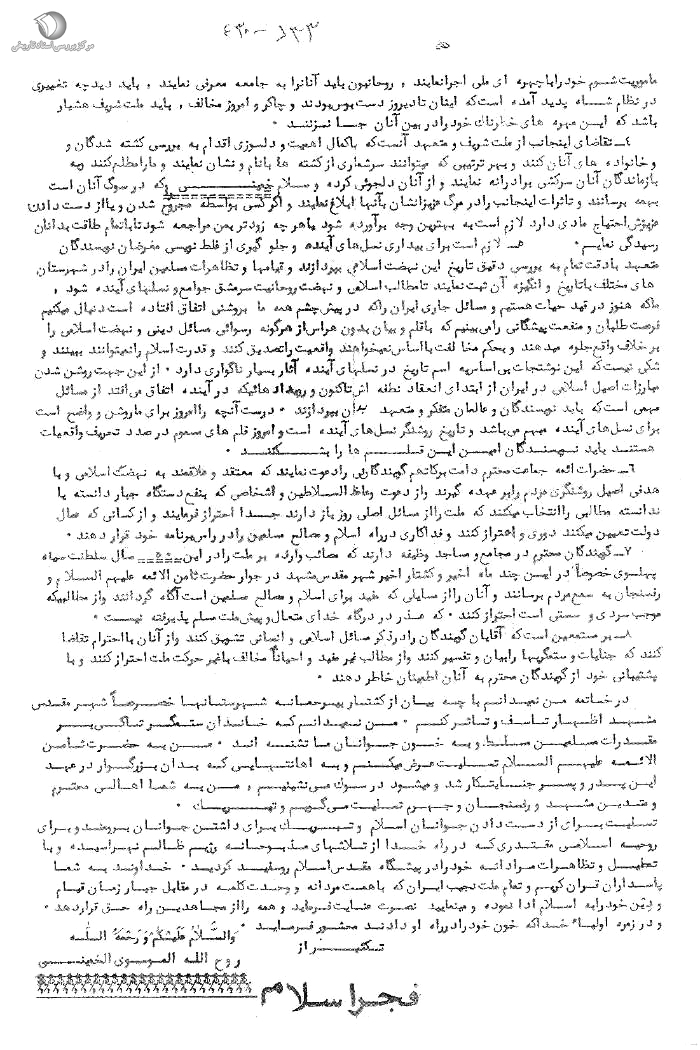 مرکز بررسی اسناد تاریخی
ماموریت شوم خود را با چهره ای ملی اجرا نمایند , روحانیون باید آنانرا به جامعه معرفی نمایند , باید دید چه تغییری
در نظام شاه پدید آمده است که اینان تا دیروز دست بوس بودند و چاکر و امروز مخالف , باید ملت شریف هشیار
باشد که این مهره های خطرناک خود را در بین آنان جا نزنند .
٤ـ تقاضای اینجانب از ملت شریف و متعهد آنست که با کمال اهمیت و دلسوزی اقدام به بررسی کشته شدگان و
و خانواده های آنان کنند و بهر ترتیبی که میتوانند سرشماری از کشته ها با نام و نشان نمایند و ما را مطلع کنند و به
بازماندگان آنان سرکشی برادرانه نمایند و از آنان دلجوئی کرده و سلام خمینی را که در سوگ آنان است
بهمه برسانند و تاثرات اینجانب را در مرگ عزیزانشان بآنها ابلاغ نمایند و اگر کسی بواسطه مجروح شدن و یا از دست دادن
عزیزش احتیاج مادی دارد لازم است به بهترین وجه برآورده شود یا هر چه زودتر بمن مراجعه شود تا با تمام طاقت بدانان
رسیدگی نمایم . ٥ـ لازم است برای بیداری نسل های آینده و جلو گیری از غلط نویسی مغرضان نویسندگان
متعهد با دقت تمام به بررسی دقیق تاریخ این نهضت اسلامی بپردازند و قیامها و تظاهرات مسلمین ایران را در شهرستان
های مختلف با تاریخ و انگیزه آن ثبت نمایند تا مطالب اسلامی و نهضت روحانیت سرمشق جوامع و نسلهای آینده شود ,
ما که هنوز در قید حیات هستیم و مسائل جاری ایران را که در پیش چشم همه ما بروشنی اتفاق افتاده است دنبال میکنیم
فرصت طلبان و منفعت پیشگانی را می بینیم که با قلم و بیان بدون هراس از هرگونه رسوائی مسائل دینی و نهضت اسلامی را
بر خلاف واقع جلوه میدهند و بحکم مخالفت با اساس نمیخواهند واقعیت را تصدیق کنند و قدرت اسلام را نمیتوانند ببینند و
شکی نیست که این نوشتجات بی اساس به اسم تاریخ در نسلهای آینده آثار بسیار ناگواری دارد . از این جهت روشن شدن
مبارزات اصیل اسلامی در ایران از ابتدای انعقاد نطفه اش تاکنون و رویدادهائیکه در آینده اتفاق می افتد از مسائل
مهمی است که باید نویسندگان و عالمان متفکر و متعهد بدان بپردازند . درست آنچه را امروز برای ما روشن و واضح است
برای نسل های آینده مبهم می باشد و تاریخ روشنگر نسل های آینده است و امروز قلم های مسموم در صدد تحریف واقعیات
هستند باید نویسندگان امین این قلم ها را بشکنند .
٦ـ حضرات ائمه جماعت محترم دامت برکاتهم گویندگانی را دعوت نمایند که معتقد و علاقمند به نهضت اسلامی و با
هدفی اصیل روشنگری مردم را بر عهده گیرند و از دعوت وعاظ السلاطین و اشخاصی که بنفع دستگاه جبار دانسته یا
ندانسته مطالبی را انتخاب میکنند که ملت را از مسائل اصلی روز باز دارند جدا احتراز فرمایند و از کسانی که حال
دولت تعیین میکنند دوری و اعتراز کنند و فداکاری در راه اسلام و مصالح مسلمین را در راس برنامه خود قرار دهند .
٧ـ گویندگان محترم در مجامع و مساجد وظیفه دارند که مصائب وارده بر ملت را در این سال سلطنت سیاه
پهلوی خصوصاً در این چند ماه اخیر و کشتار اخیر شهر مقدس مشهد در جوار حضرت ثامن الائمه علیهم السلام و
رفسنجان به سمع مردم برسانند و آنان را از مسایلی که مفید برای اسلام و مصالح مسلمین است آگاه گردانند و از مطالبیکه
موجب سردی و سستی است احتراز کنند . که عذر در درگاه خدای متعال و پیش ملت مسلم پذیرفته نیست .
٨ـ بر مستمعین است که آقایان گویندگان را در ذکر مسائل اسلامی و انسانی تشویق کنند و از آنان با احترام تقاضا
کنند که جنایات و ستمگریها را بیان و تفسیر کنند و از مطالب غیر مفید و احیاناً مخالف یا غیر حرکت ملت احتراز کنند و با
پشتیبانی خود از گویندگان محترم به آنان اطمینان خاطر دهند .
در خاتمه من نمیدانم با چه بیان از کشتار بیرحمانه شهرستانها خصوصاً شهر مقدس
مشهد اظهار تاسف و تاثر کنم . من نمیدانم که خاندان ستمگر تا کی بر
مقدرات مسلمین مسلط و به خون جوانان ما تشنه اند . من به حضرت ثامن
الائمه علیهم السلام تسلیت عرض میکنم و به اهانتهایی که بدان بزرگوار در عهد
این پدر و پسر جنایتکار شد و میشود در سوک می نشینم , من به شما اهالی محترم
و متدین مشهد و رفسنجان و جهرم تسلیت می گویم و تبریک .
تسلیت برای از دست دادن جوانان اسلام و تبریک برای داشتن جوانان برومند و برای
روحیه اسلامی مقتدری که در راه خدا از تلاشهای مذبوحانه رژیم ظالم نهراسیده و با
تعطیل و تظاهرات مردانه خود را در پیشگاه مقدس اسلام روسفید کردید . خداوند به شما
پاسداران قرآن کریم و تمام ملت نجیب ایران که با همت مردانه و وحدت کلمه در مقابل جبار زمان قیام
و دین خود را به اسلام ادا نموده و مینمایید نصرت عنایت فرماید و همه را از مجاهدین راه حق قرار دهد .
و در زمره اولیاء خدا که خون خود را در راه او دادند محشور فرماید .
والسلام علیکم و رحمة الله
روح الله الموسوی الخمینی
تکثیر از
فجر اسلام